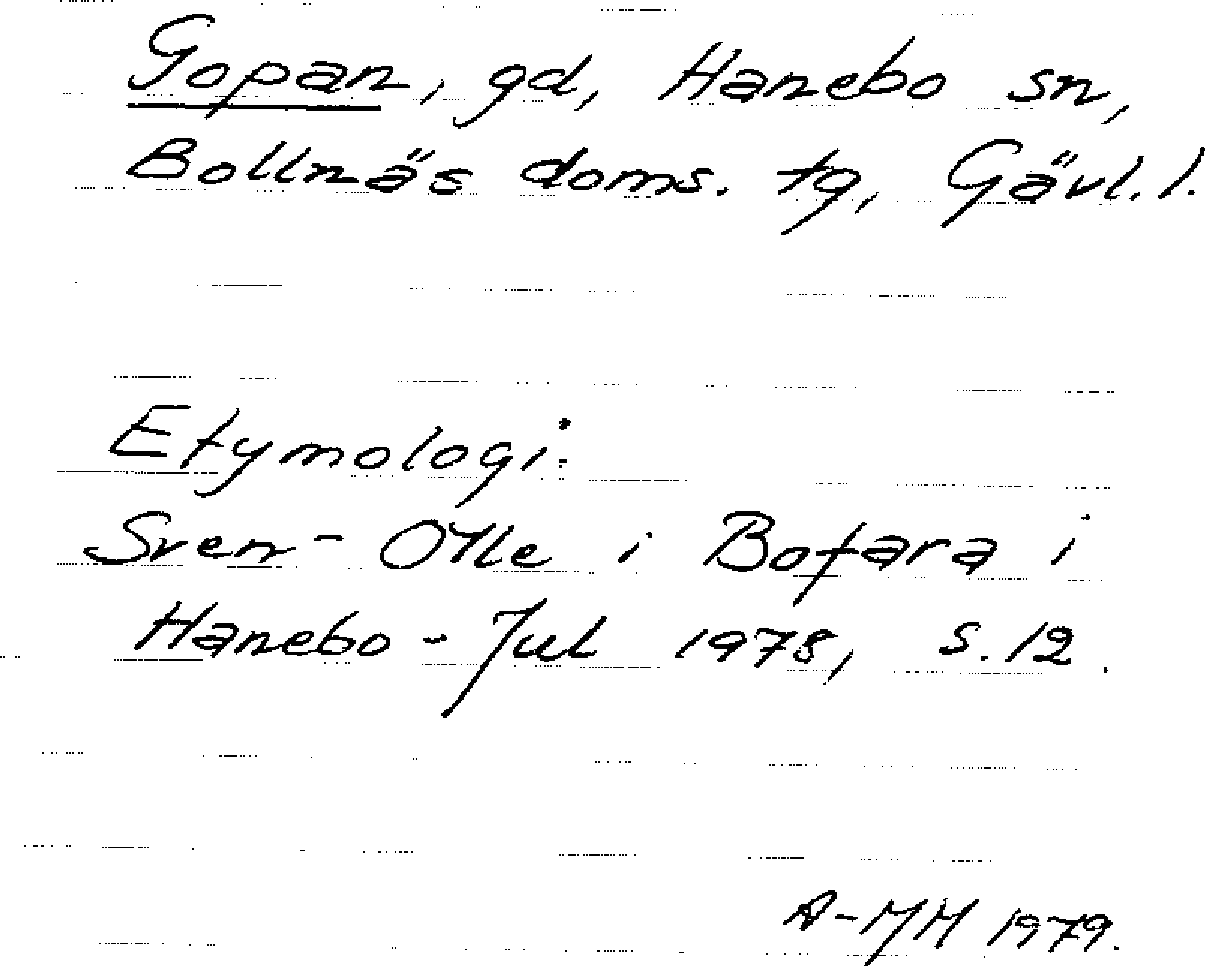 Gopan, gd, Hanebo sn,
Bollnäs doms. tg, Gävl. l.
Etymologi:
Sven-Olle i Bofara i
Hanebo-Jul 1978, s. 12.
A-MH 1979.